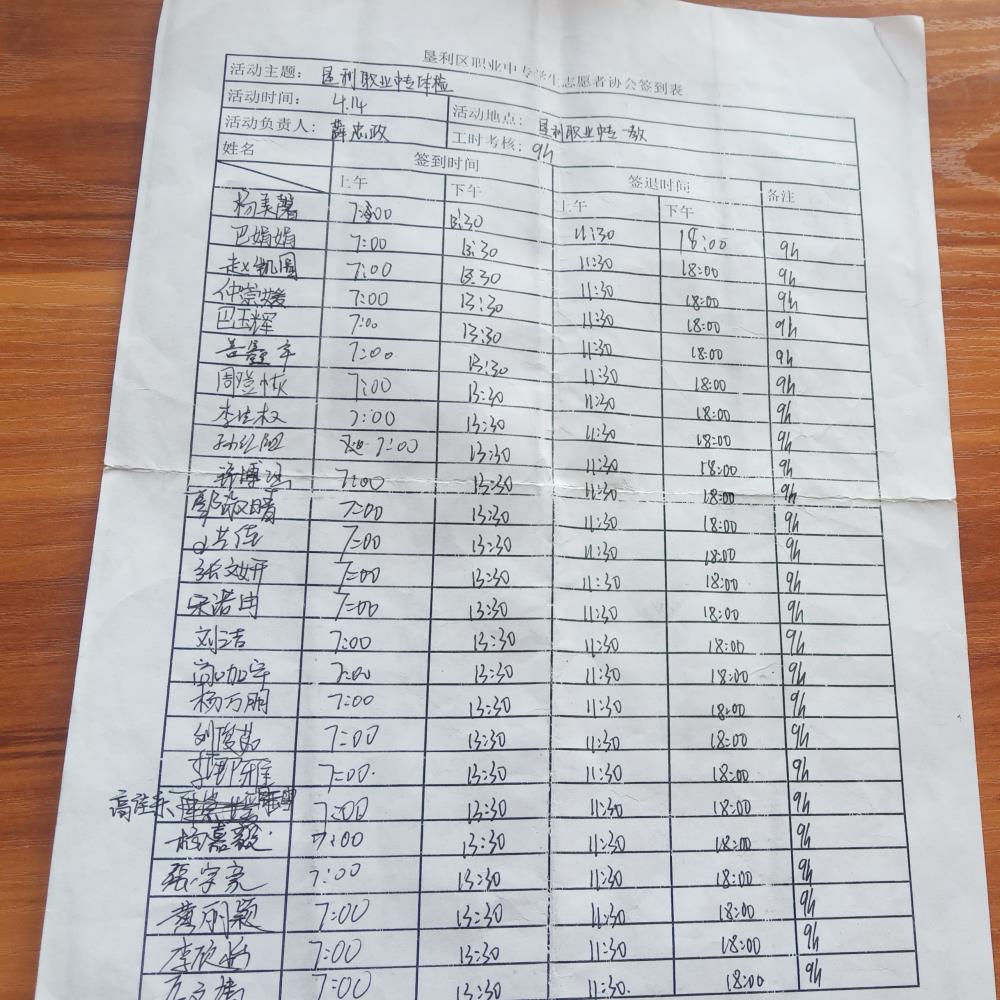 垦利区职业中专学生志愿者协会签到表
活动主题： 垦利职业中专体检
活动时间： 4.14 活动地点： 垦利职业中专一教
活动负责人： 薛忠政 工时考核： 9h
姓名 签到时间 签退时间 备注
上午 下午 上午 下午
杨美馨 7:00 13:30 11:30 18:00 9h
巴娟娟 7:00 13:30 11:30 18:00 9h
赵凯圆 7:00 13:30 11:30 18:00 9h
仲崇媛 7:00 13:30 11:30 18:00 9h
巴玉辉 7:00 13:30 11:30 18:00 9h
7:00 13:30 11:30 18:00 9h
7:00 13:30 11:30 18:00 9h
李生权 7:00 13:30 11:30 18:00 9h
7:00 13:30 11:30 18:00 9h
7:00 13:30 11:30 18:00 9h
郭淑晴 7:00 13:30 11:30 18:00 9h
7:00 13:30 11:30 18:00 9h
张文妍 7:00 13:30 11:30 18:00 9h
宋诺冉 7:00 13:30 11:30 18:00 9h
刘洁 7:00 13:30 11:30 18:00 9h
高加宇 7:00 13:30 11:30 18:00 9h
杨万朋 7:00 13:30 11:30 18:00 9h
刘俊茹 7:00 13:30 11:30 18:00 9h
7:00 13:30 11:30 18:00 9h
7:00 13:30 11:30 18:00 9h
杨嘉毅 7:00 13:30 11:30 18:00 9h
张宇亮 7:00 13:30 11:30 18:00 9h
黄丽颖 7:00 13:30 11:30 18:00 9h
李欣 7:00 13:30 11:30 18:00 9h
7:00 13:30 11:30 18:00 9h